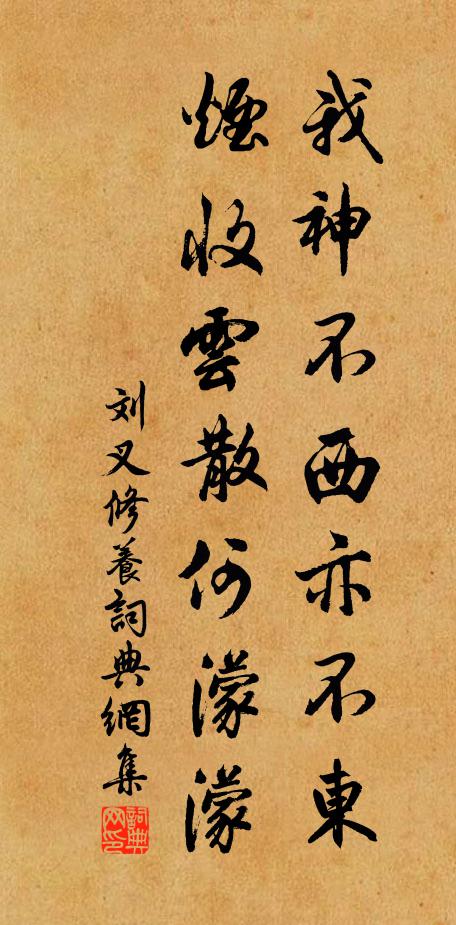 我神不西亦不東
煙收雲散何濛濛
刘叉修養詞典網集
詞典网印